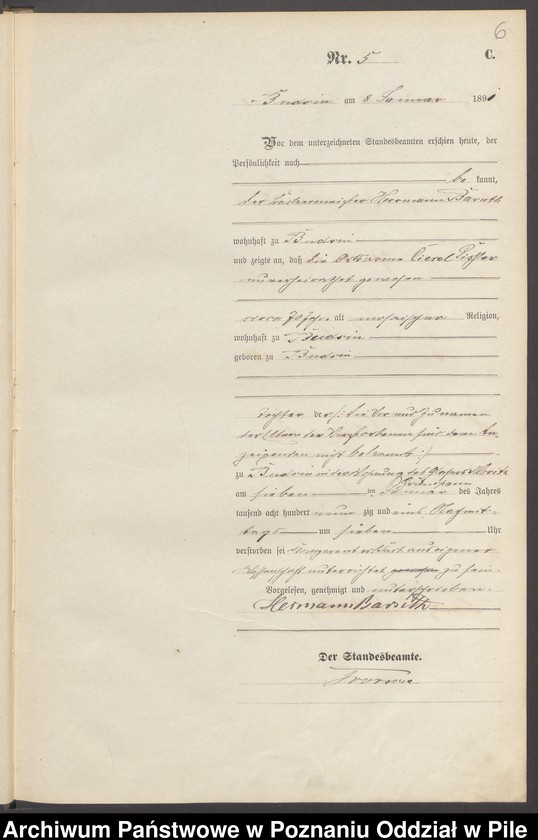 6
Nr. 5 C.
Budsin am 8 Januar 1891
Vor dem unterzeichneten Standesbeamten erschien heute, der
Persönlichkeit nach
be kannt,
der Bäckermeister Hermann Baruth
wohnhaft zu Budsin
und zeigte an, daß die Ortsarme
unverheirathet gewesen
circa 70 Jahr alt mosaischer Religion,
wohnhaft zu Budsin
geboren zu Budsin
Tochter der /: die Vor und Zunamen
der Eltern der Verstorbenen sind dem An-
zeigenden nicht bekannt :/
zu Budsin in der Wohnung des Moritz
am sieben ten Januar des Jahres
tausend acht hundert neun zig und eins, Nachmit-
tags um sieben Uhr
verstorben sei aus eigener
Wissenschaft unterrichtet gewesen zu sein.
Vorgelesen, genehmigt und unterschrieben.
Hermann Baruth
Der Standesbeamte.
Archiwum Państwowe w Poznaniu Oddział w Pile